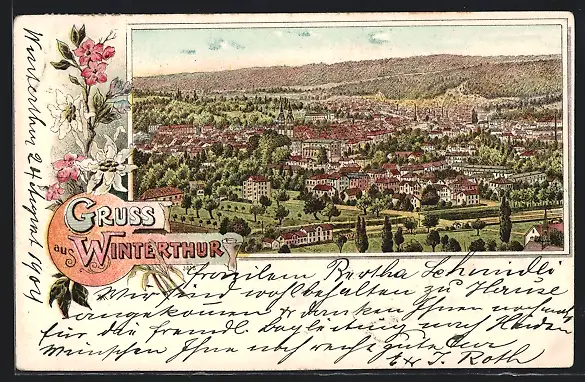 Winterthur 24 August 1904
GRUSS
aus WINTERTHUR
Fräulein Bertha Schmidli
Wir sind wohlbehalten zu Hause
angekommen & danken Ihnen nochmals
für die freundl. Begleitung nach
Wünschen Ihne noch recht gute
J. Roth